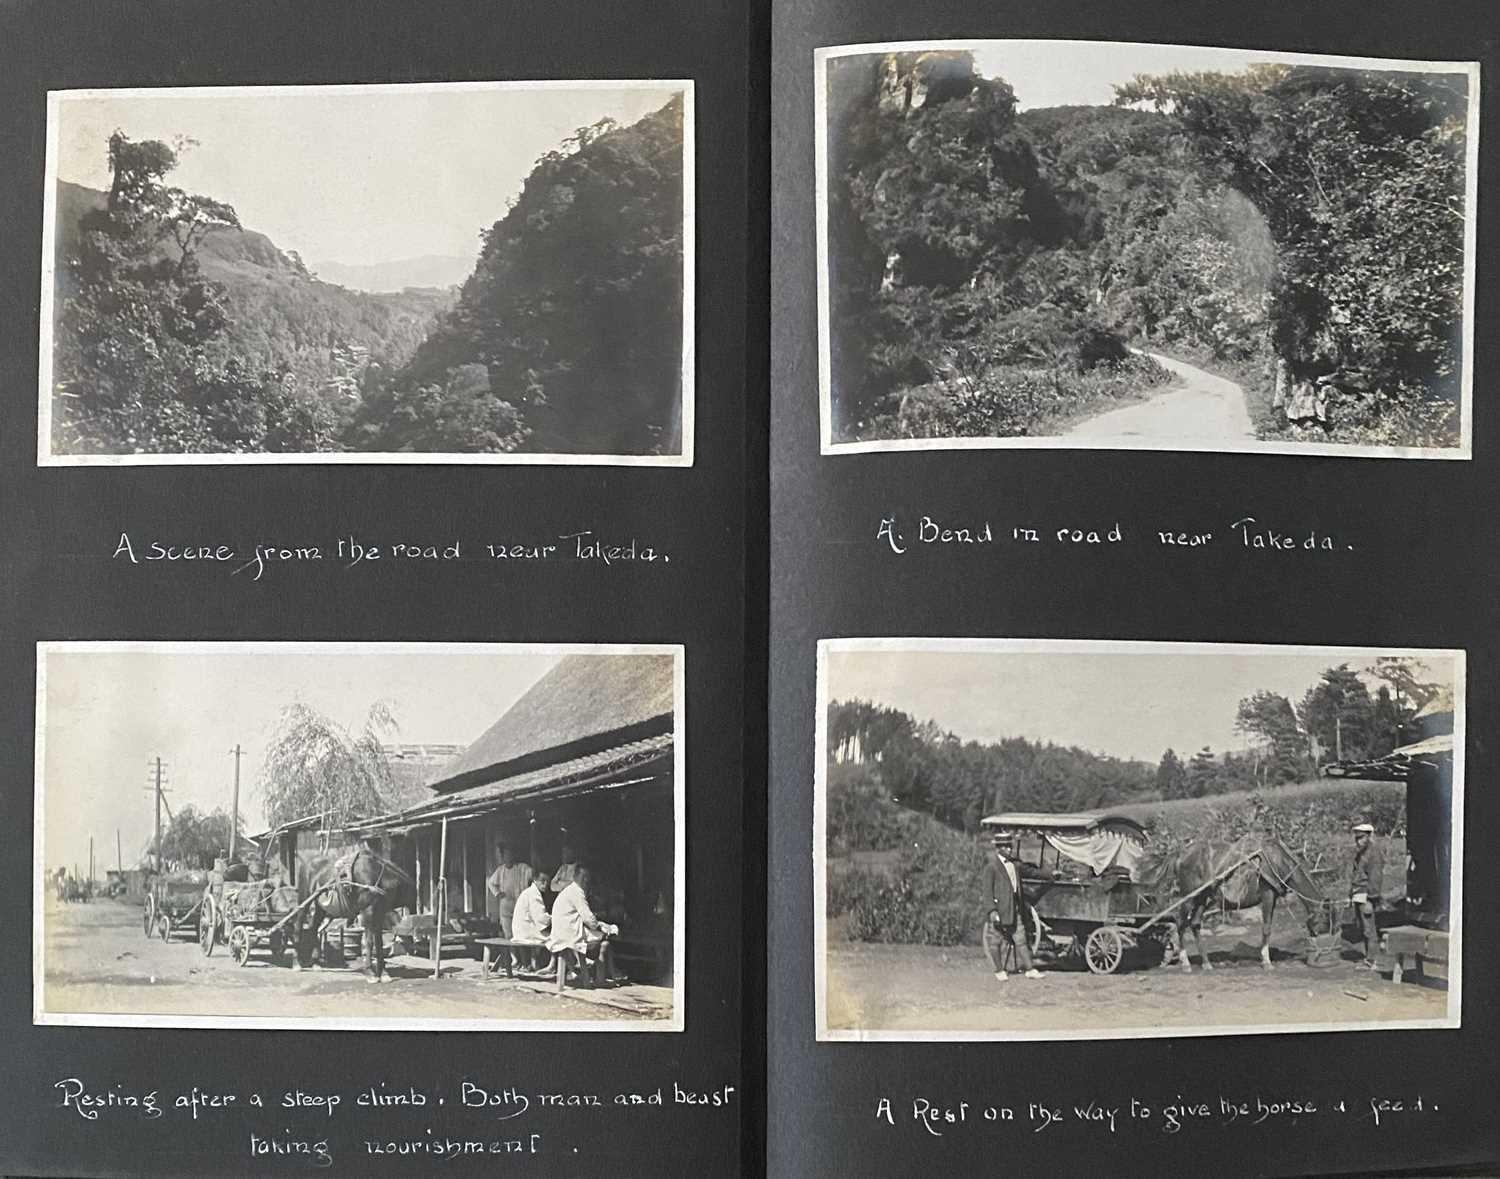 A scene from the road near Takeda.
A. Bend in road near Takeda.
Resting after a steep climb. Both man and beast
taking nourishment.
A Rest on the way to give the horse a feed.